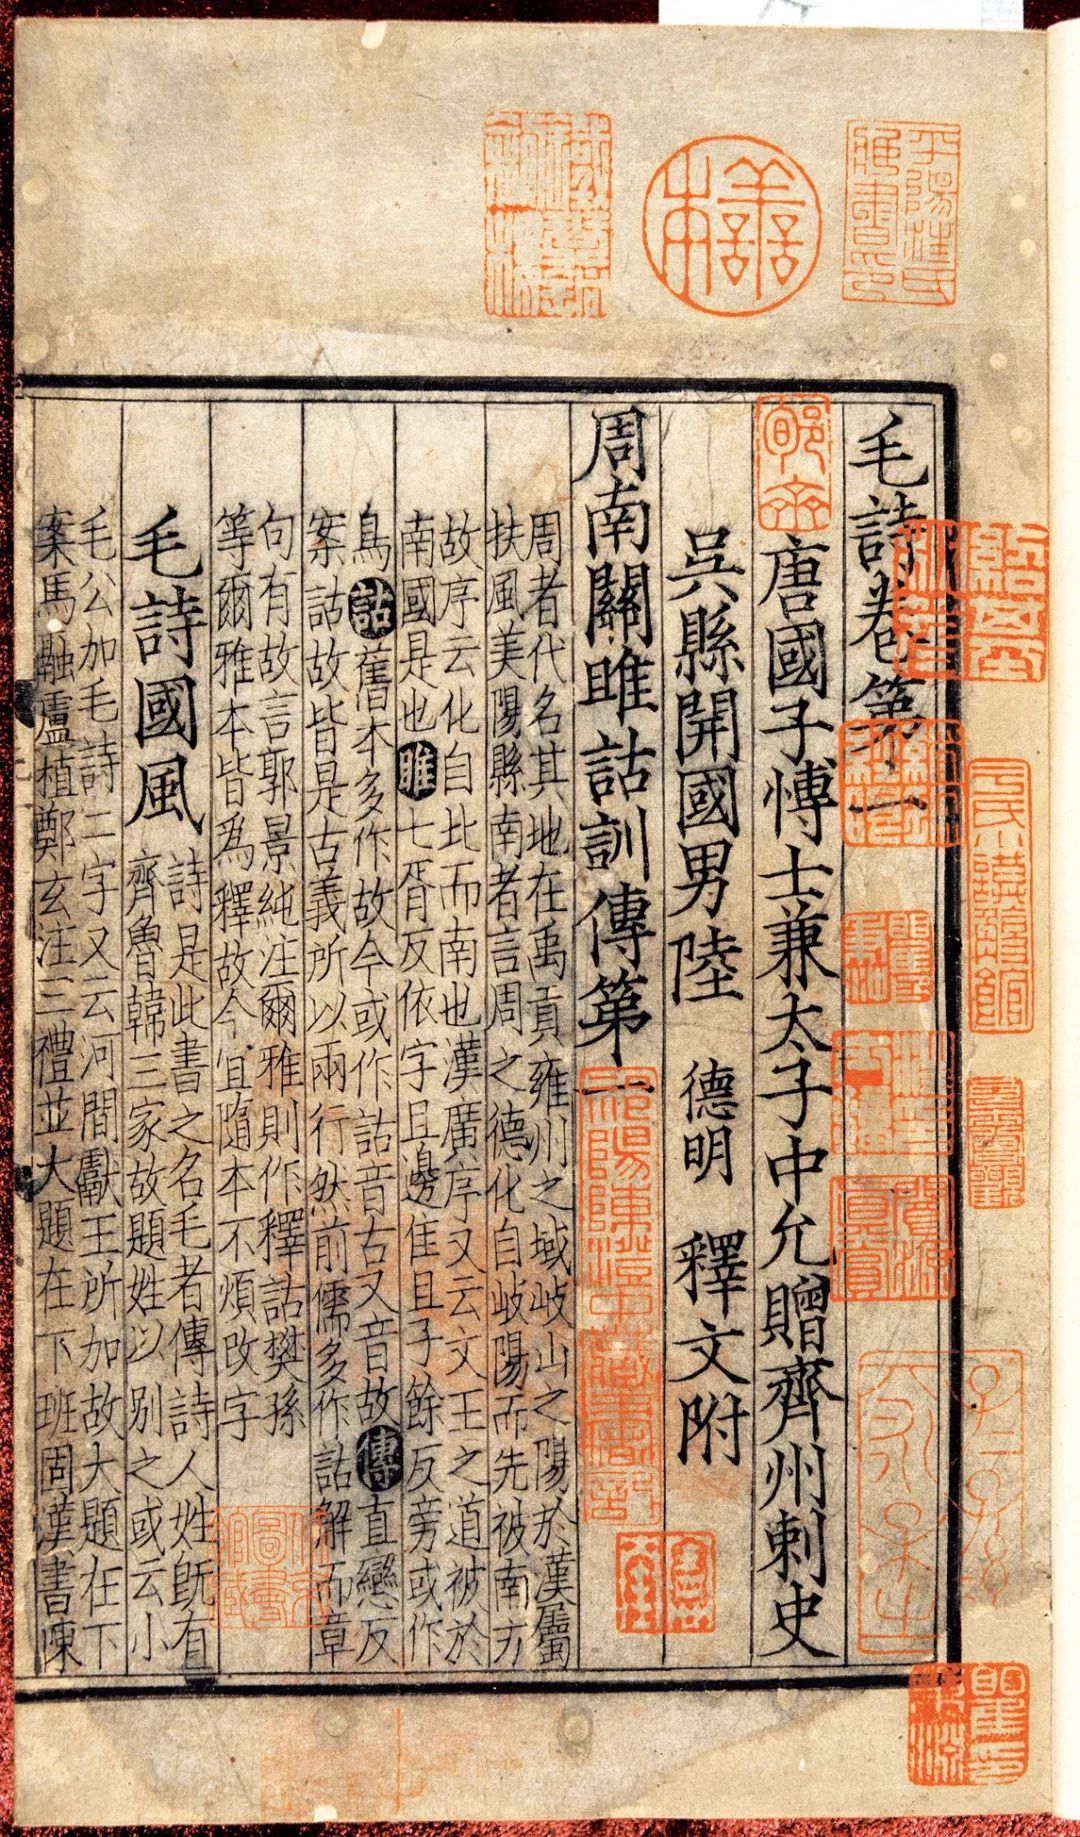 善本
平陽汪氏藏書印
毛詩卷第一
唐國子博士兼太子中允贈齊州刺史
郇齋
吳縣開國男陸 德明 釋文附
周南關雎詁訓傳第一
祁陽陳澄中藏書記
周者代名其地在禹貢雍州之域岐山之陽於漢屬
扶風美陽縣南者言周之德化自岐陽而先被南方
故序云化自北而南也漢廣序又云文王之道被於
南國是也雎七胥反依字且邊隹且子餘反旁或作
鳥詁舊本多作故今或作詁音古又音故傳直戀反
案詁故皆是古義所以兩行然前儒多作詁解而章
句有故言郭景純注爾雅則作釋詁樊孫
等爾雅本皆爲釋故今宜隨本不煩改字
毛詩國風
詩是此書之名毛者傳詩人姓旣有
齊魯韓三家故題姓以别之或云小
毛公加毛詩二字又云河間獻王所加故大題在下
案馬融盧植鄭玄注三禮並大題在下班固漢書陳